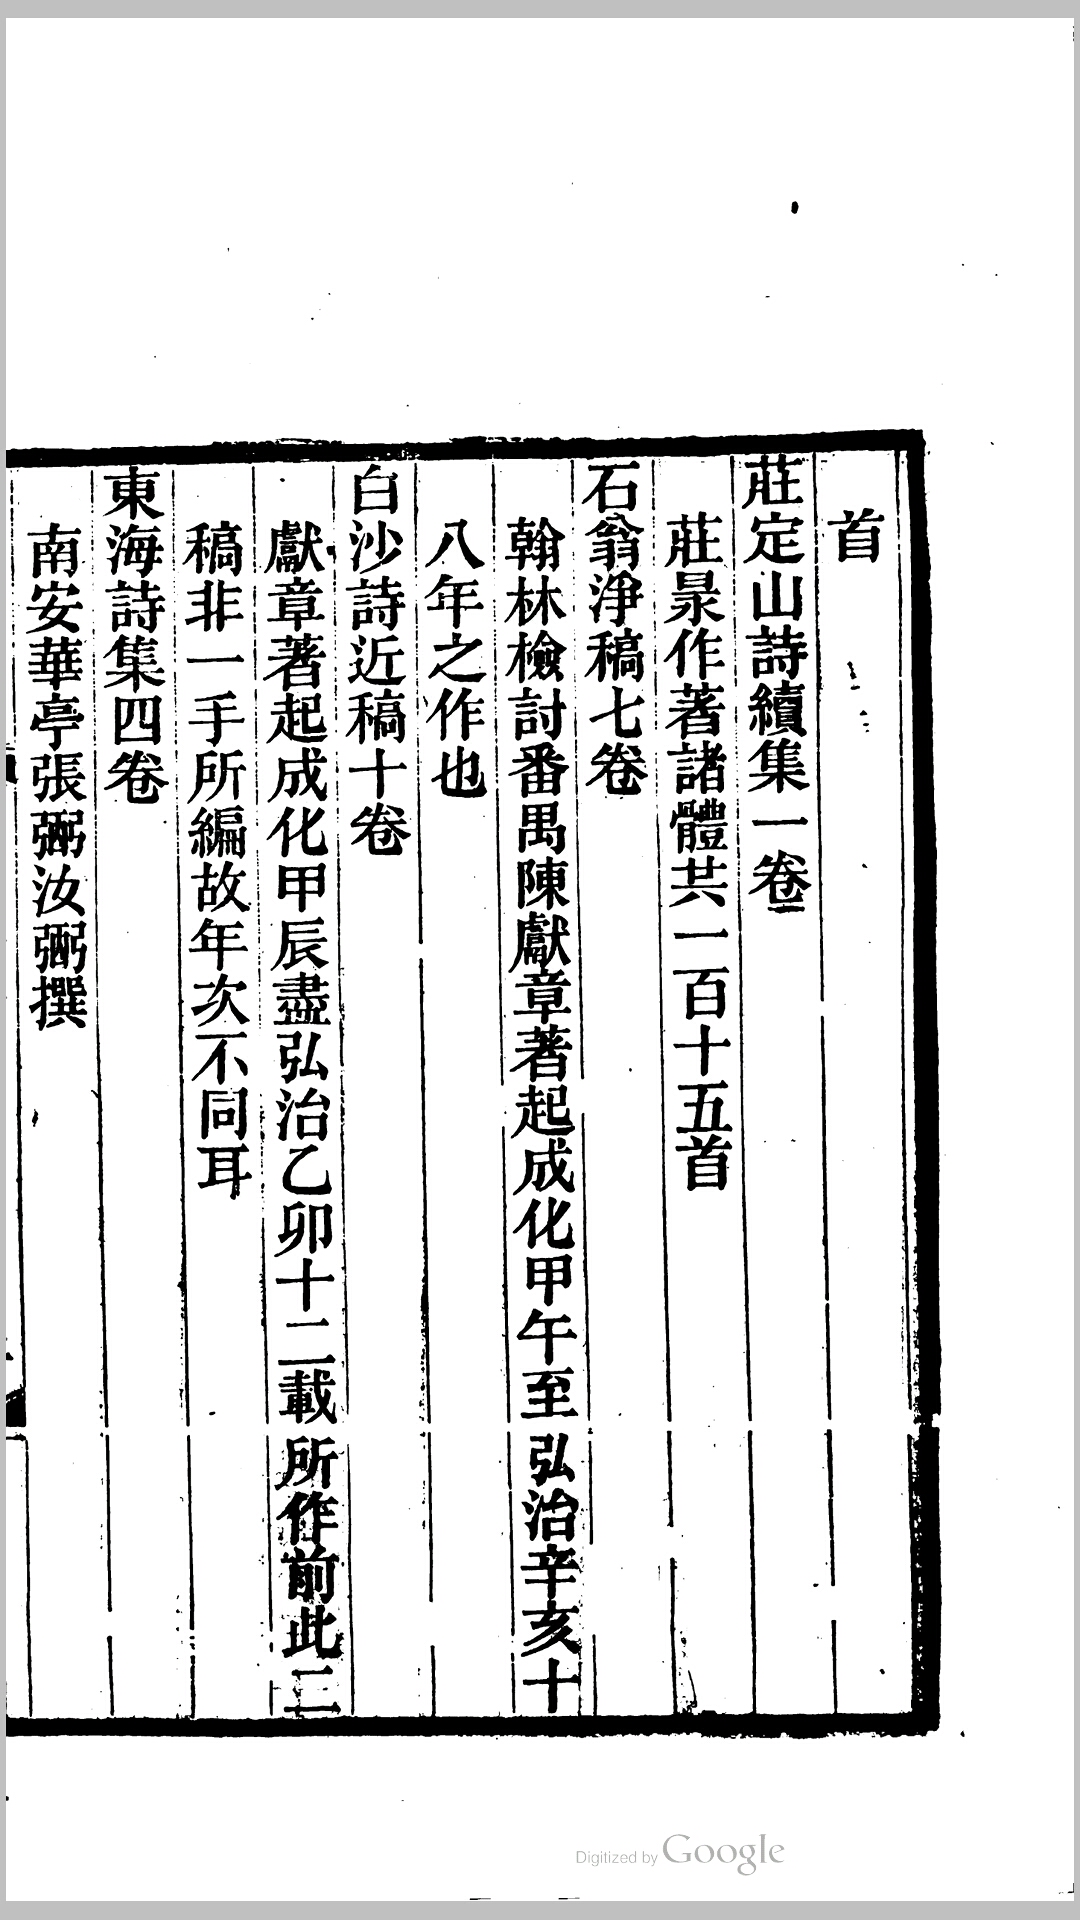 首
莊定山詩續集一卷
莊㫤作著諸體共一百十五首
石翁淨稿七卷
翰林檢討番禺陳獻章著起成化甲午至弘治辛亥十
八年之作也
白沙詩近稿十卷
獻章著起成化甲辰盡弘治乙卯十二載所作前此二
稿非一手所編故年次不同耳
東海詩集四卷
南安華亭張弼汝弼撰
Digitized by Google